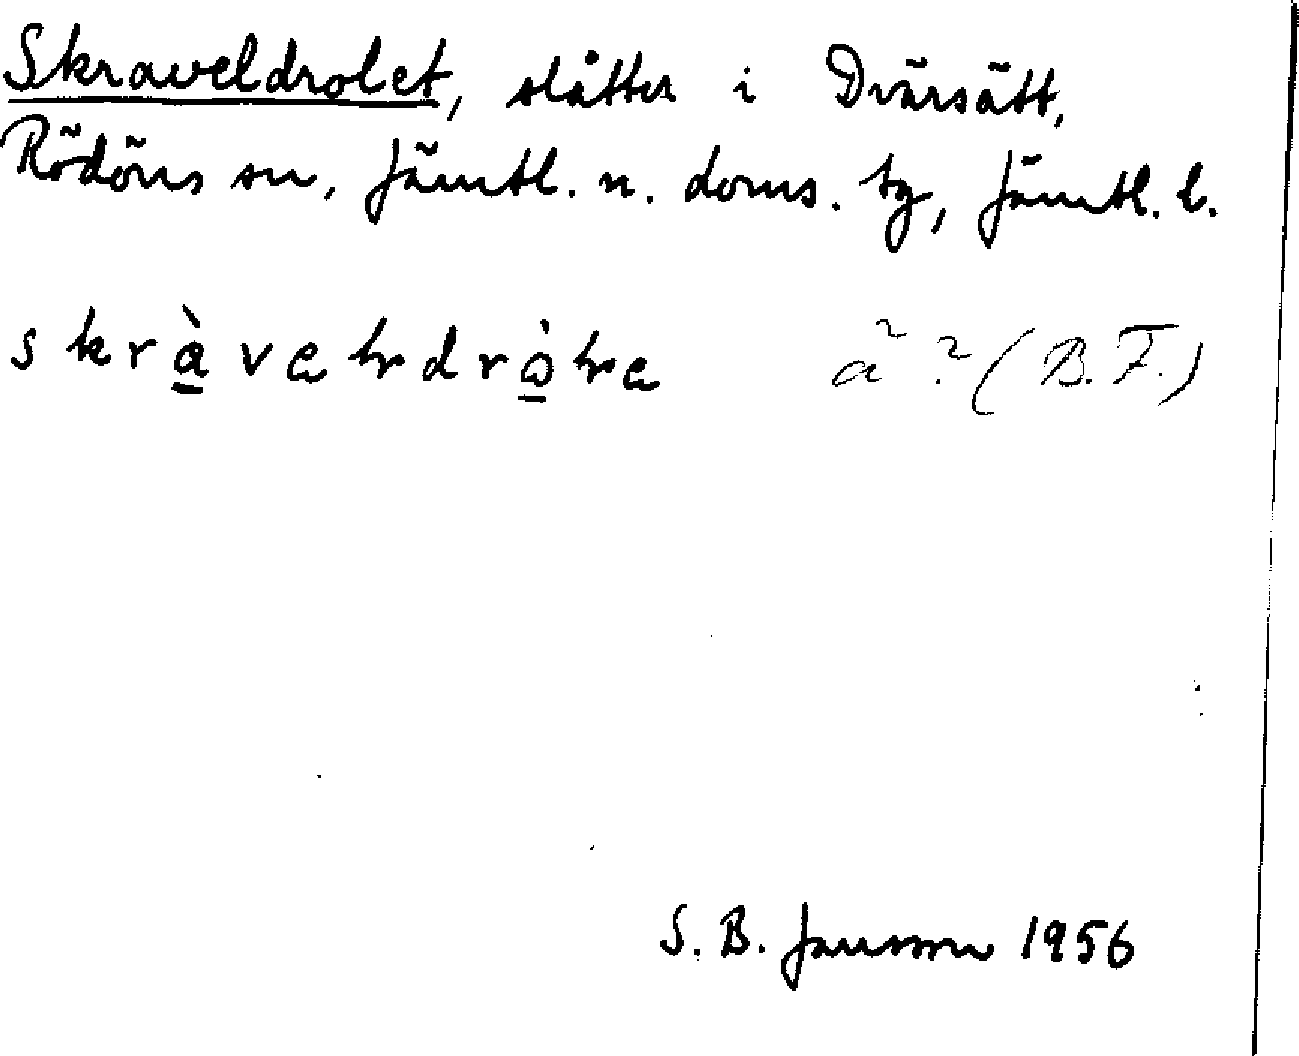 Skraveldrolet, slåtter i Dvärsätt,
Rödöns sn, Jämtl. n. doms. tg, Jämtl. l.
skrà̱vaɽdrò̱ɽa ã? (B. F.)
S. B. Jansson 1956